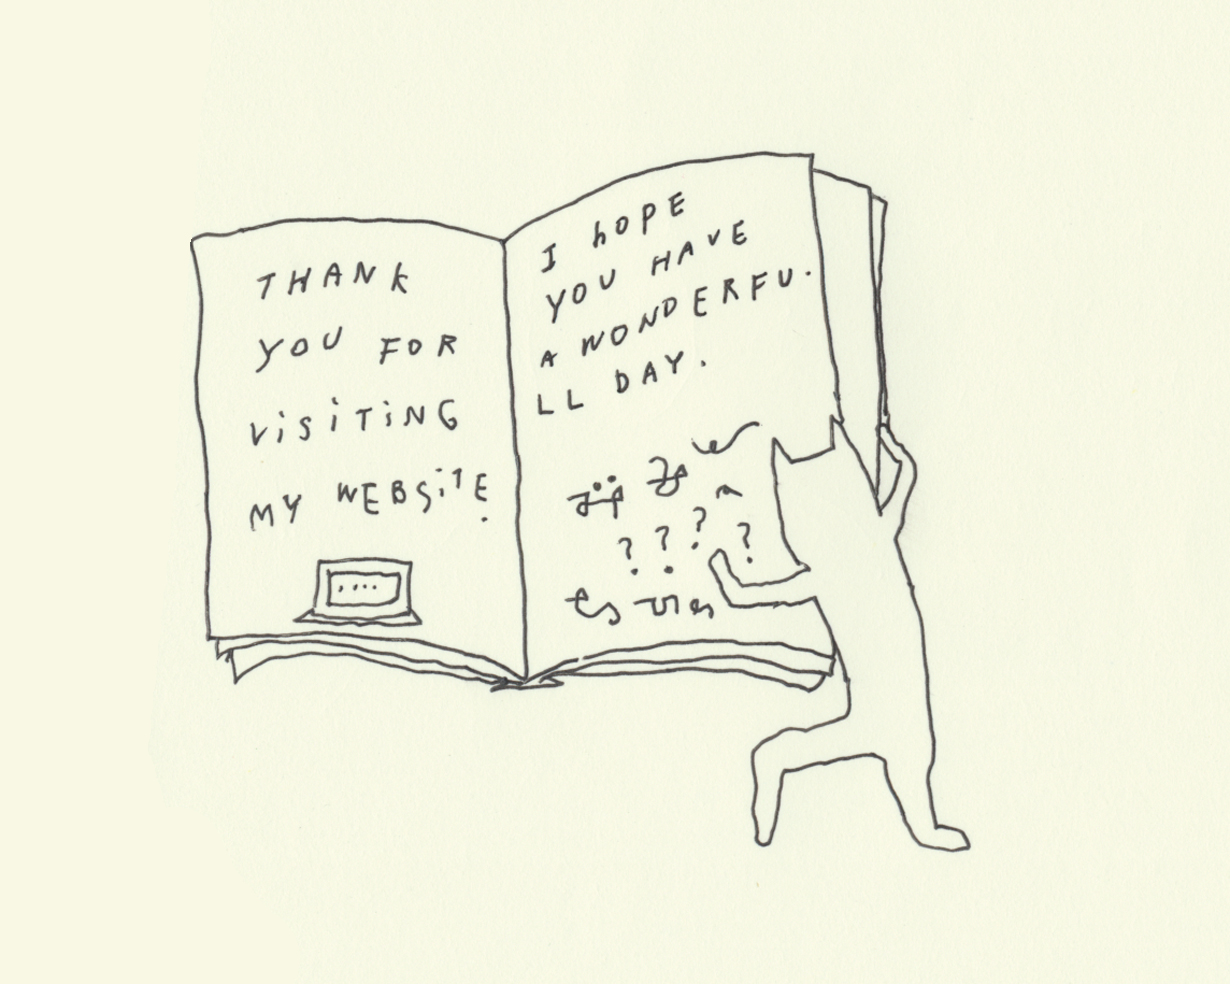 THANK
YOU FOR
ViSiTiNG
MY WEBSiTE.
I hOPE
YOU HAVE
A WONDERFU.
LL DAY.
? ? ? ?